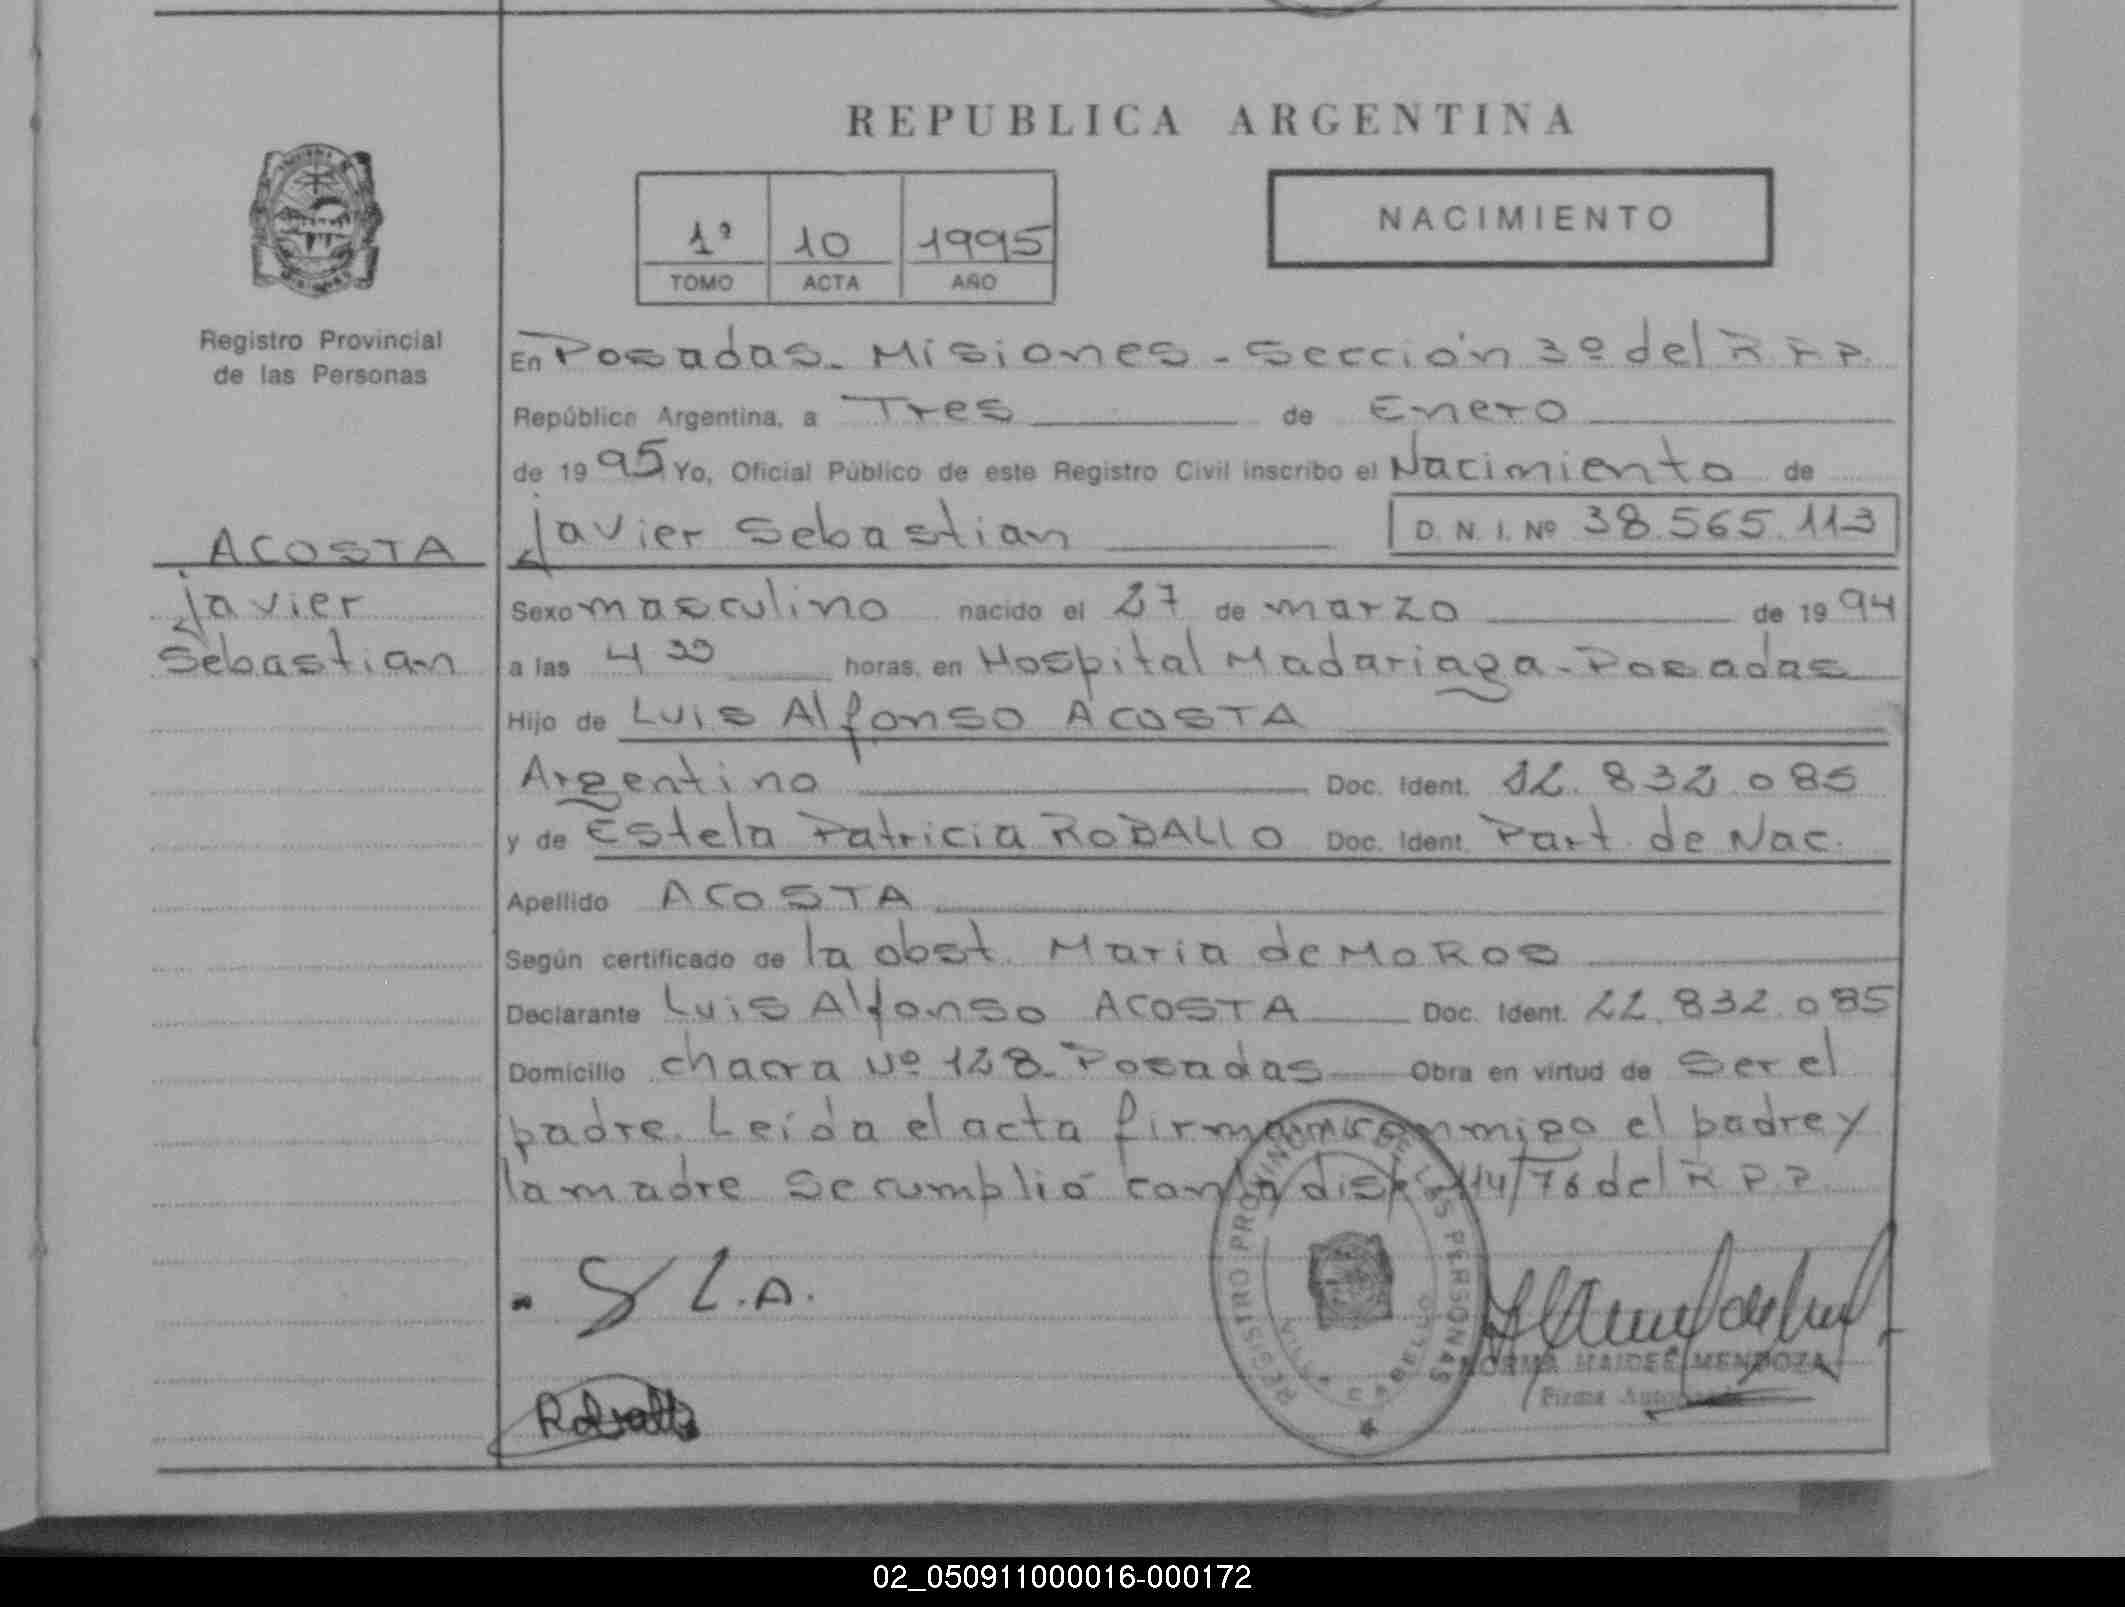 REPUBLICA ARGENTINA
1º 10 1995
TOMO ACTA AÑO
NACIMIENTO
Registro Provincial
de las Personas
ACOSTA
Javier
Sebastian
En Posadas - Misiones - Sección 3º del R.P.P.
República Argentina, a Tres de Enero
de 1995 Yo, Oficial Público de este Registro Civil inscribo el Nacimiento de
Javier Sebastian D. N. I. Nº 38.565.113
Sexo masculino nacido el 27 de marzo de 1994
a las 4 horas, en Hospital Madariaga - Posadas
Hijo de Luis Alfonso ACOSTA
Argentino Doc. Ident. 22.832.085
y de Estela Patricia ROBALLO Doc. Ident. Part. de Nac.
Apellido ACOSTA
Según certificado de la obst. Maria de MOROS
Declarante Luis Alfonso ACOSTA Doc. Ident. 22.832.085
Domicilio chacra Nº 128 - Posadas Obra en virtud de ser el
padre. Leída el acta firman conmigo el padre y
la madre se cumplió con la disp. 114/76 del R.P.P.
L.A.
Roballo
REGISTRO PROVINCIAL DE LAS PERSONAS
NORMA HAIDEE MENDOZA
Firma Autorizada
02_050911000016-000172